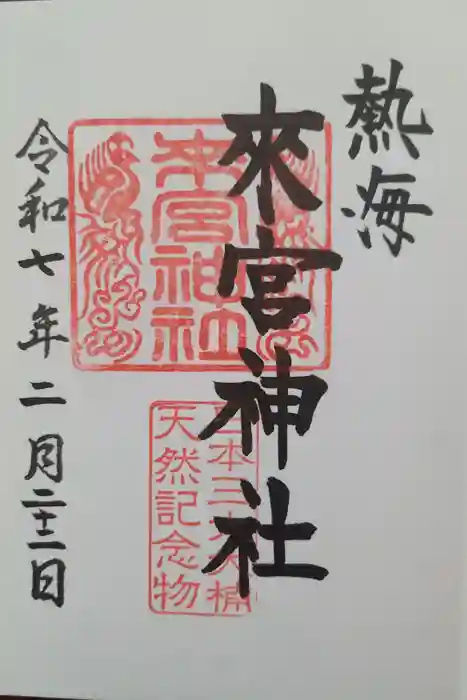 熱海
來宮神社
令和七年二月二十二日
来宮神社
日本三大大楠
天然記念物